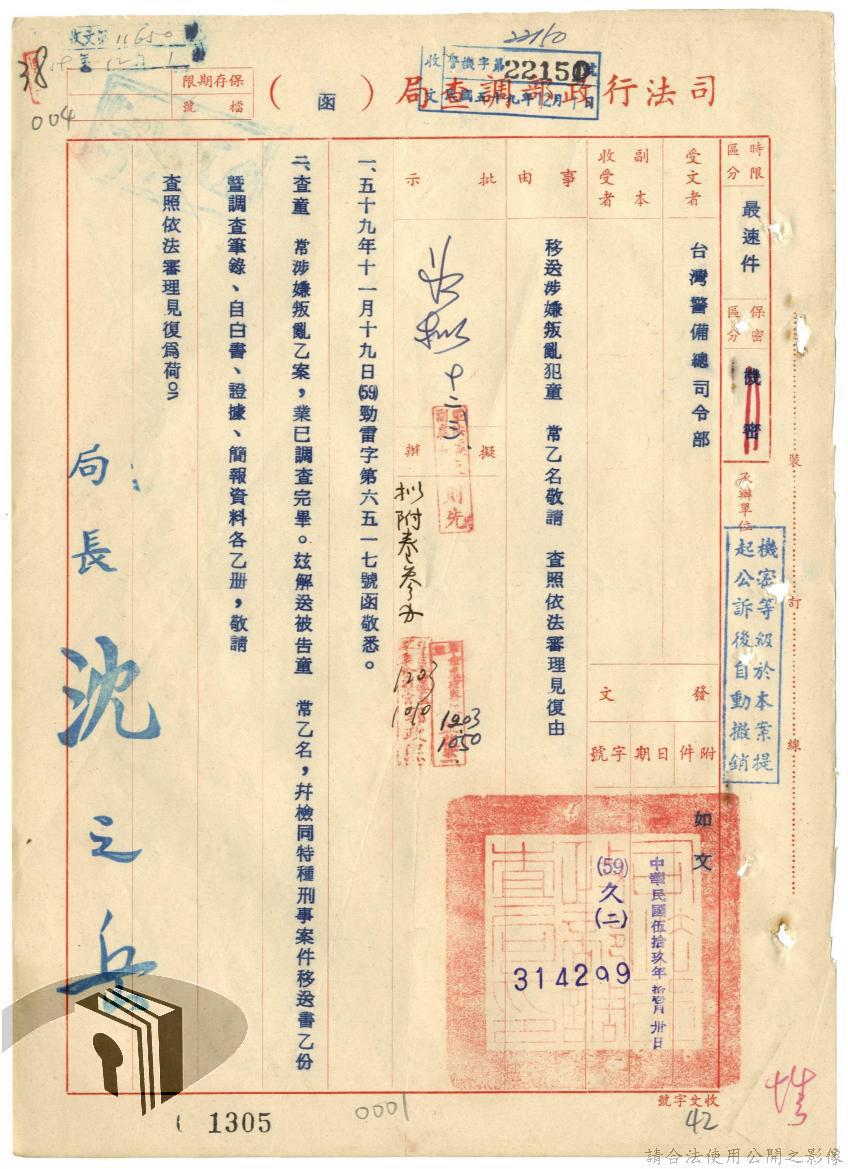 司法行政部調查局(函)
保存期限
檔號
收文第11650
59年12月1
38
004
22150
收文
警機字第22150號
民國五十九年12月1日
時限區分
最速件
保密區分
機密
承辦單位
機密等級於本案提
起公訴後自動撤銷
裝
訂
線
受文者
台灣警備總司令部
副本收受者
發文
附件
如文
日期
中華民國伍拾玖年拾壹月卅日
字號
(59)久(二)
314299
事由
移送涉嫌叛亂犯童 常乙名敬請 查照依法審理見復由
批示
十二、三
擬辦
擬附卷參辦
則先
1203
1050
1203
1010
一、五十九年十一月十九日(59)勁雷字第六五一七號函敬悉。
二、查童 常涉嫌叛亂乙案,業已調查完畢。茲解送被告童 常乙名,幷檢同特種刑事案件移送書乙份
暨調查筆錄、自白書、證據、簡報資料各乙册,敬請
查照依法審理見復爲荷。
局長 沈之岳
收文字號
42
1305
0001
請合法使用公開之影像